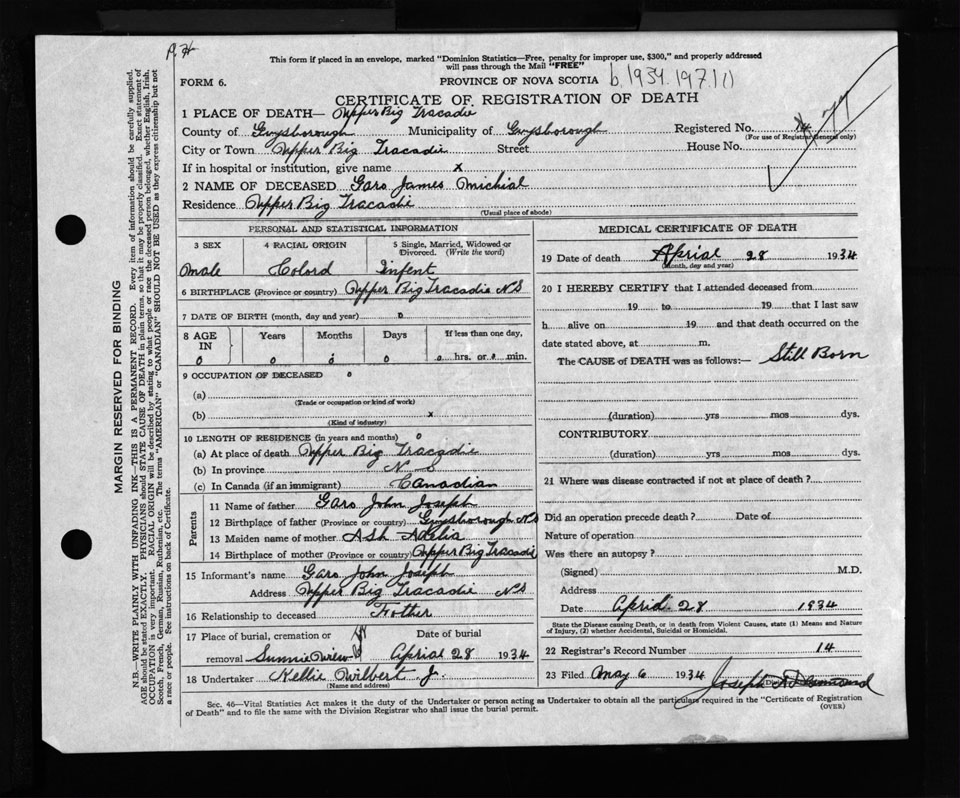 P. H
This form if placed in an envelope, marked "Dominion Statistics—Free, penalty for improper use, $300," and properly addressed
will pass through the Mail "FREE"
FORM 6. PROVINCE OF NOVA SCOTIA b. 1934. 1971
CERTIFICATE OF REGISTRATION OF DEATH
1 PLACE OF DEATH— Upper Big Tracadie
County of Guysborough Municipality of Guysborough Registered No.
(For use of Registrar General only)
City or Town Upper Big Tracadie Street House No.
If in hospital or institution, give name x
2 NAME OF DECEASED Garo James Michial
Residence Upper Big Tracadie
(Usual place of abode)
PERSONAL AND STATISTICAL INFORMATION
3 SEX 4 RACIAL ORIGIN 5 Single, Married, Widowed or Divorced. (Write the word)
Male Colord Infent
6 BIRTHPLACE (Province or country) Upper Big Tracadie N S
7 DATE OF BIRTH (month, day and year) 0
8 AGE IN Years Months Days If less than one day,
0 0 0 0 0 hrs. or 0 min.
9 OCCUPATION OF DECEASED 0
(a)
(Trade or occupation or kind of work)
(b) x
(Kind of industry)
10 LENGTH OF RESIDENCE (in years and months) 0
(a) At place of death Upper Big Tracadie
(b) In province N S
(c) In Canada (if an immigrant) Canadian
Parents
11 Name of father Garo John Joseph
12 Birthplace of father (Province or country) Guysborough N S
13 Maiden name of mother Ash Adelia
14 Birthplace of mother (Province or country) Upper Big Tracadie
15 Informant's name Garo John Joseph
Address Upper Big Tracadie N S
16 Relationship to deceased Fother
17 Place of burial, cremation or Date of burial
removal Aprial 28 1934
18 Undertaker Nellie Wilbert J.
(Name and address)
MEDICAL CERTIFICATE OF DEATH
19 Date of death Aprial 28 1934
(Month, day and year)
20 I HEREBY CERTIFY that I attended deceased from
19 to 19 that I last saw
h alive on 19 and that death occurred on the
date stated above, at m.
The CAUSE of DEATH was as follows:— Still Born
(duration) yrs mos dys.
CONTRIBUTORY
(duration) yrs mos dys.
21 Where was disease contracted if not at place of death?
Did an operation precede death? Date of
Nature of operation
Was there an autopsy?
(Signed) M.D.
Address
Date Aprid. 28 1934
State the Disease causing Death, or in death from Violent Causes, state (1) Means and Nature
of Injury, (2) whether Accidental, Suicidal or Homicidal.
22 Registrar's Record Number 14
23 Filed May 6 1934 Joseph A Desmond
Sec. 46—Vital Statistics Act makes it the duty of the Undertaker or person acting as Undertaker to obtain all the particulars required in the "Certificate of Registration
of Death" and to file the same with the Division Registrar who shall issue the burial permit. (OVER)
MARGIN RESERVED FOR BINDING
N.B.—WRITE PLAINLY WITH UNFADING INK—THIS IS A PERMANENT RECORD. Every item of information should be carefully supplied.
AGE should be stated EXACTLY. PHYSICIANS should STATE CAUSE OF DEATH in plain terms, so that it may be properly classified. Exact statement of
OCCUPATION is very important. RACIAL ORIGIN will be described by stating to what people or race the deceased person belonged, whether English, Irish,
Scotch, French, German, Russian, Ruthenian, etc. The terms "AMERICAN" or "CANADIAN" SHOULD NOT BE USED as they express citizenship but not
a race or people. See instructions on back of Certificate.